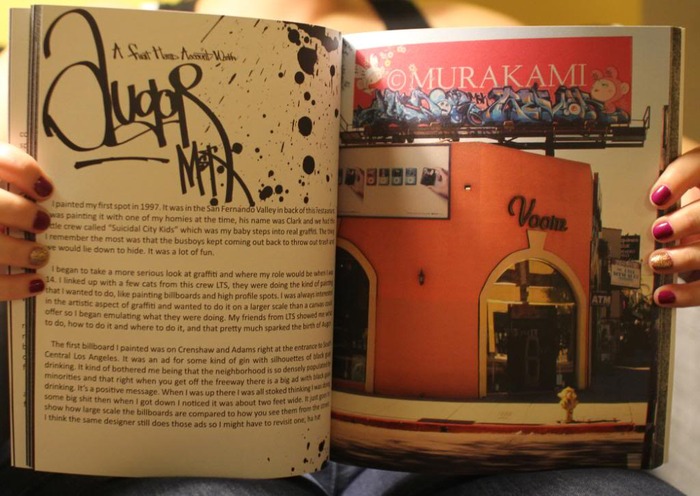 A First Hand Account With
Augor
MSK
I painted my first spot in 1997. It was in the San Fernando Valley in back of this
was painting it with one of my homies at the time, his name was Clark and we had
crew called "Suicidal City Kids" which was my baby steps into real graffiti. The
I remember the most was that the busboys kept coming out back to throw out trash and
we would lie down to hide. It was a lot of fun.
I began to take a more serious look at graffiti and where my role would be when I was
14. I linked up with a few cats from this crew LTS, they were doing the kind of
that I wanted to do, like painting billboards and high profile spots. I was always
in the artistic aspect of graffiti and wanted to do it on a larger scale than a canvas
offer so I began emulating what they were doing. My friends from LTS showed me
to do, how to do it and where to do it, and that pretty much sparked the birth of
The first billboard I painted was on Crenshaw and Adams right at the entrance to
Central Los Angeles. It was an ad for some kind of gin with silhouettes of black
drinking. It kind of bothered me being that the neighborhood is so densely populated
minorities and that right when you get off the freeway there is a big ad with black
drinking. It's a positive message. When I was up there I was all stoked thinking I was
some big shit then when I got down I noticed it was about two feet wide. It just
show how large scale the billboards are compared to how you see them from the
I think the same designer still does those ads so I might have to revisit one, ha
©MURAKAMI
Voom
ATM